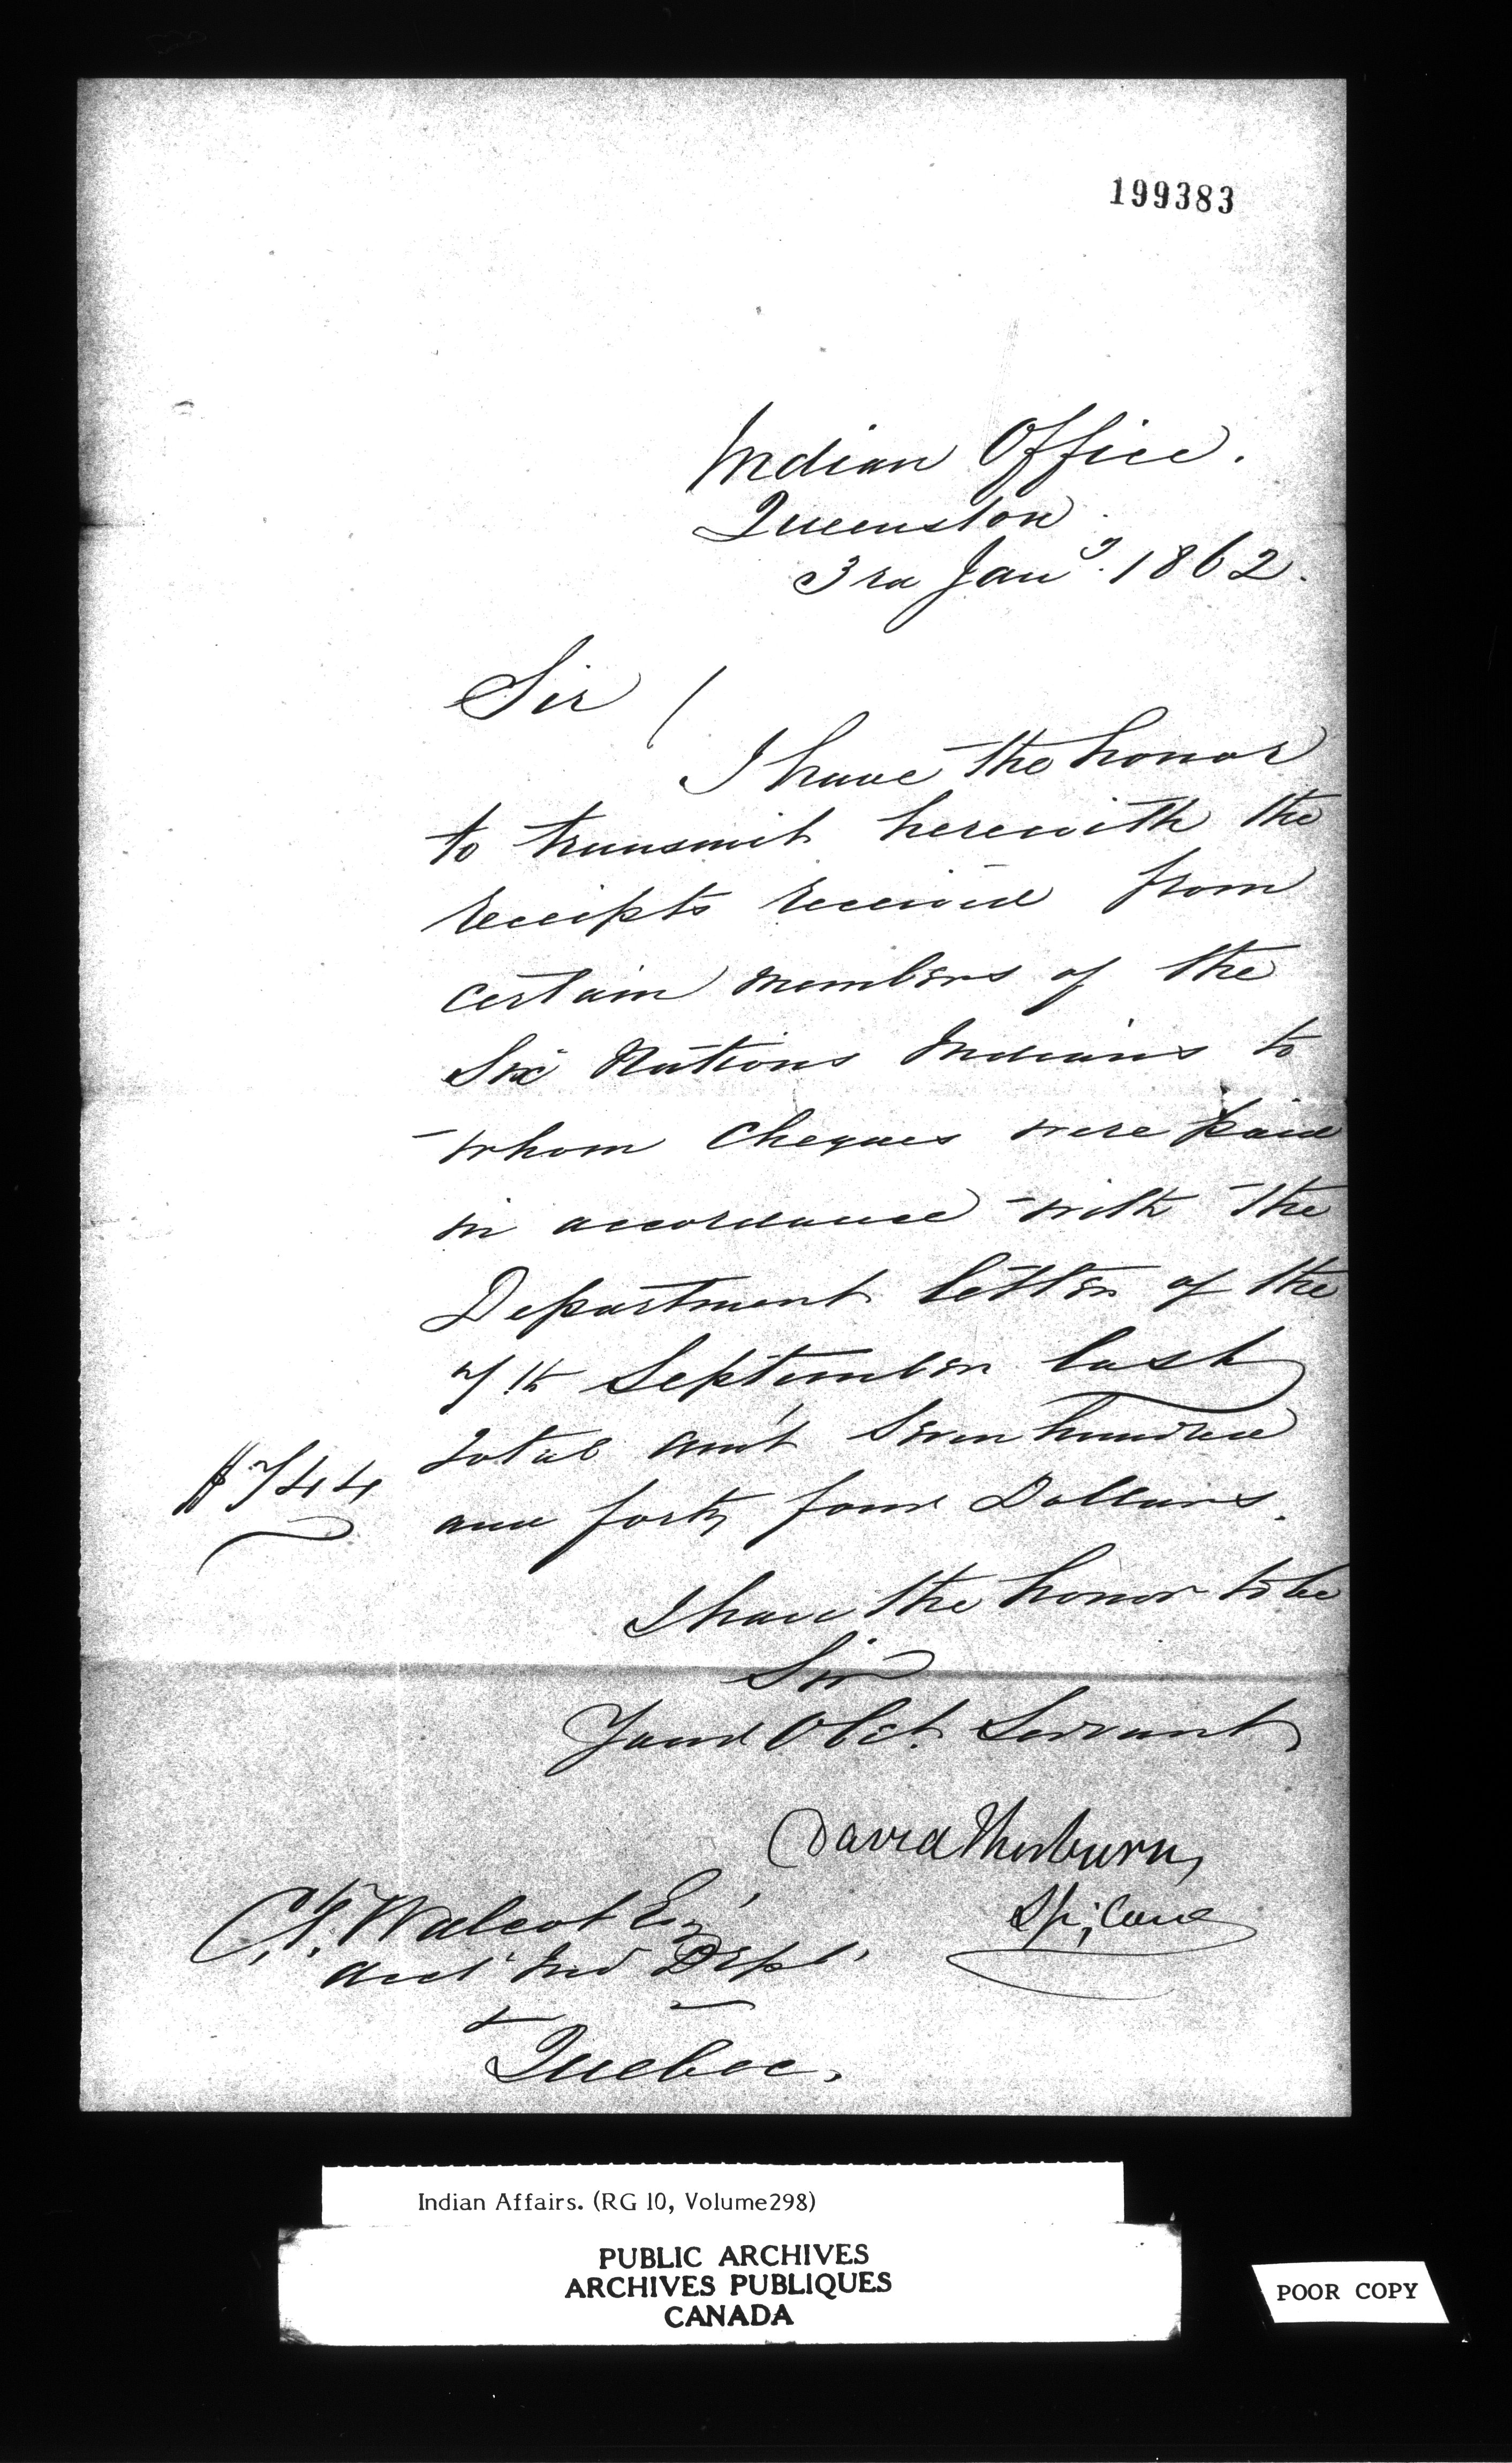 199383
Indian Office.
Queenston
3rd Jany. 1862.
Sir /
I have the honor
to transmit herewith the
receipts received from
certain members of the
Six Nations Indians to
whom Cheques were paid
in accordance with the
Department letter of the
7th September last
total am't Seven hundred
$744
and forty four Dollars.
I have the honor to be
Sir
Your Obdt. Servant
David Thorburn,
Sp; Com
C. T. Walcot Esq'
Acct Ind Dept.
Quebec.
Indian Affairs. (RG 10, Volume298)
PUBLIC ARCHIVES
ARCHIVES PUBLIQUES
CANADA
POOR COPY